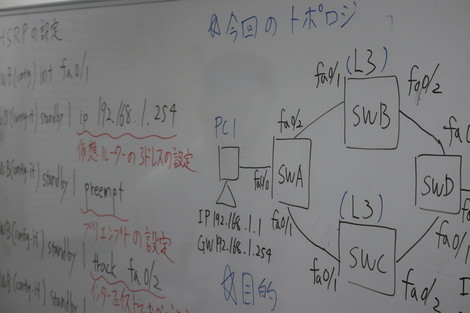 HSRPの設定
(config) int fa0/1
(config-if) standby 1 ip 192.168.1.254
仮想ルーターのアドレスの設定
(config-if) standby 1 preempt
プリエンプトの設定
(config-if) standby 1 track fa0/2
(config-if) standby 1
☆今回のトポロジ
PC1
fa0/0
IP 192.168.1.1
GW 192.168.1.254
SWA
fa0/2
fa0/1
(L3)
fa0/1
fa0/2
SWB
(L3)
SWC
fa0/1
fa0/2
SWD
☆目的